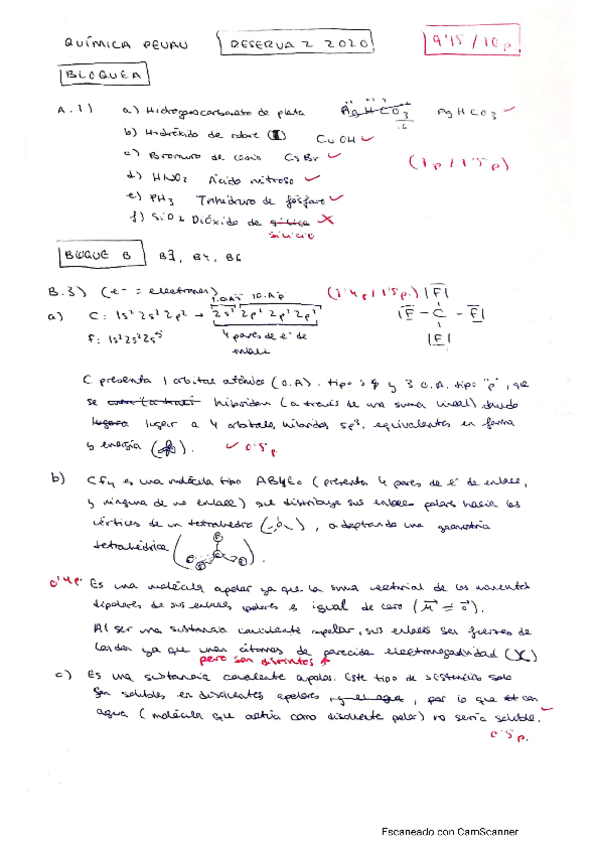 QUÍMICA PEVAU RESERVA 2 2020 9'15/10p
BLOQUE A
A.1) a) Hidrogenocarbonato de plata AgHCO3 AgHCO3
b) Hidróxido de cobre (I) CuOH
c) Bromuro de cesio CsBr
(1p/1'5p)
d) HNO2 Ácido nitroso
e) PH3 Trihidruro de fósforo
f) SiO2 Dióxido de X
silicio
BLOQUE B B3, B4, B6
B.3) (e- = electrones) 1 O.A s 10.A p (1'4p/1'5p.) |F|
a) C: 1s² 2s² 2p² → 2s¹ 2p¹ 2p¹ 2p¹ |F - C - F|
F: 1s² 2s² 2p⁵ 4 pares de e- de |F|
enlace
C presenta 1 orbital atómico (O.A) tipo s y 3 O.A. tipo "p", que
se hibridan (a través de una suma lineal) dando
lugar a 4 orbitales híbridos sp³, equivalentes en forma
y energía. 0'5p
b) CF4 es una molécula tipo AB4E0 (presenta 4 pares de e- de enlace,
y ninguno de no enlace) que distribuye sus enlaces polares hacia los
vértices de un tetraedro, adoptando una geometría
tetraédrica
0'4p. Es una molécula apolar ya que la suma vectorial de los momentos
dipolares de sus enlaces polares es igual de cero (μ = 0).
Al ser una sustancia covalente apolar, sus enlaces son fuerzas de
London ya que unen átomos de parecida electronegatividad (X)
pero son distintos
c) Es una sustancia covalente apolar. Este tipo de sustancias solo
son solubles en disolventes apolares, por lo que con
agua (molécula que actúa como disolvente polar) no sería soluble.
0'5p.
Escaneado con CamScanner